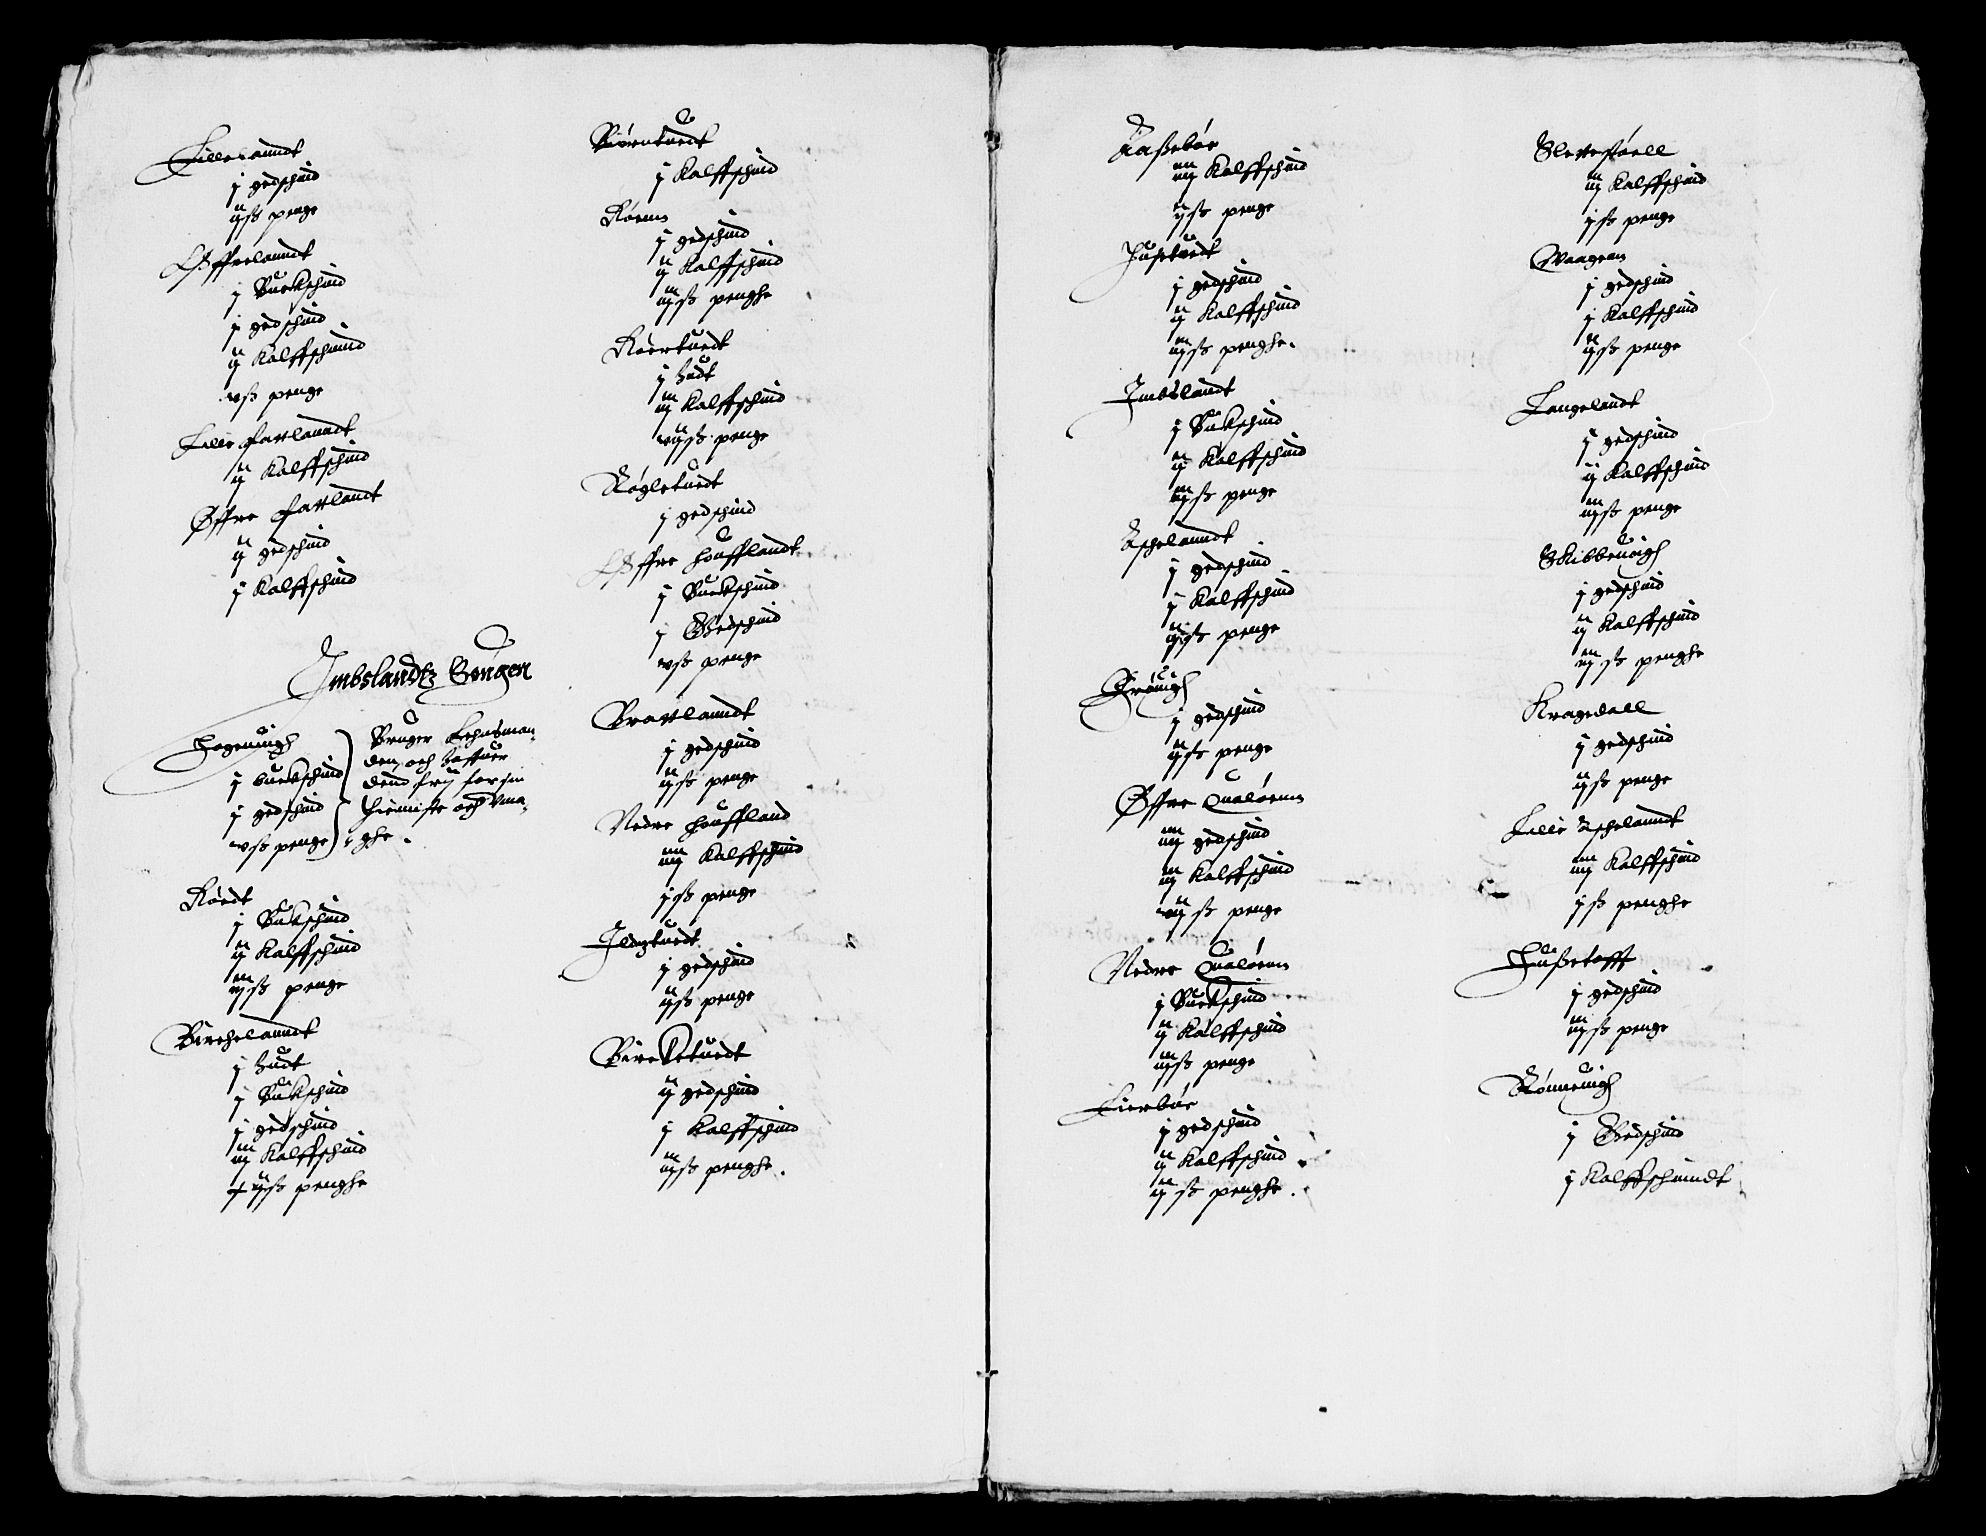 Lillelanndt
j gedschind
ijß penge
Øffrelanndt
j Buckschind
j gedschind
ij Kalffschinnd
vß penge
Lille farlanndt
ij Kalffschind
Øffre farlandt
ij gedschind
j Kalffschind
Imbslandtz Sougen
Hogeuigh
j buckschind
j gedschind
vß penge
Bruger Lehnsman,
den, och haffuer
dend frij for sin
Thienniste och Vma,
ghe.
Röedt
j Buckschind
ij Kalffschind
iijß penge
Birchelanndt
j hudt
j Buckschind
j gedschind
iij Kalffschind
ijß penghe
Biörntuedt
j Kalffschind
Röenn
j gedschind
ij Kalffschind
iijß penghe
Roertuedt
j hudt
iij Kalffschind
vijß penge
Rögletuedt
j gedschind
Øffre houfflandt
j Buckschind
j Gedschind
vß penge
Brattlanndt
j gedschind
ijß penge
Nedre Houffland
iiij Kalffschind
jß penge
Ildiztuedt
j gedschind
ijß penge
Bircketuedt
ij gedschind
j Kalffschind
iijß penghe.
Kaßebör
iiij Kalffschind
ijß penge
Husetuedt
j gedschind
ij Kalffschind
iijß penghe.
Imbslandt
j Buckschind
ij Kalffschind
iiijß penge
Espelanndt
j gedschind
j Kalffschind
ijß penge
Gröuigh
j gedschind
ijß penge
Øffre Qualöenn
iiij gedschind
iij Kalffschind
vijß penge
Nedre Qualöenn
j Buckschind
ij Kalffschind
iijß penge
Lierbör
j gedschind
ij Kalffschind
ijß penghe.
Slettestöell
iij Kalffschind
jß penge
Waagenn
j gedschind
j Kalffschind
ijß penge
Langelandt
ij gedschind
ij Kalffschind
iijß penge
Skibbeuigh
j gedschind
ij Kalffschind
iiijß penghe
Kragedall
j gedschind
ijß penge
Lille Espelanndt
iiij Kalffschind
jß penghe
Hußetofft
j gedschind
iijß penge
Rönneuigh
j Gedschind
j Kalffschinndt